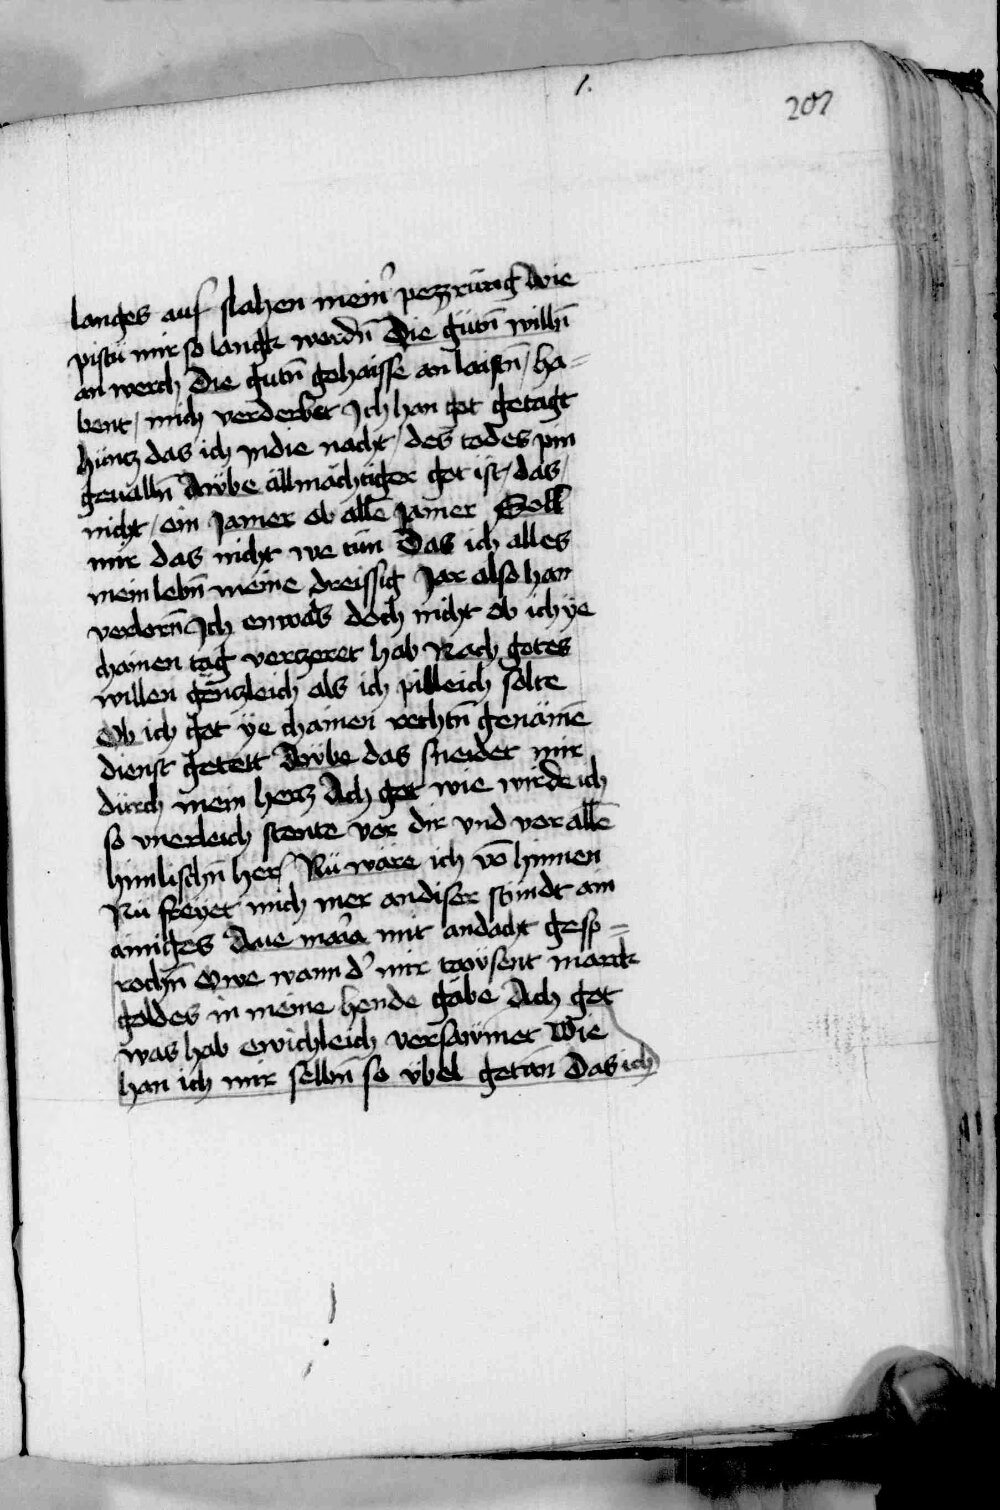 207
langes auf slahen mein᷑ pezzrūng Wie
pistu mir so langk wordn̄ Die gütn̄ willn̄
an werch Die gutn̄ gehaisse an laistn̄ / ha=
bent / mich verderbet Ich han got getagt
hüntz das ich in die nacht / des todes pin
geualln̄ Awbe ällmächtiger got ist / das /
nicht / ein Jamer ob alle Jamer Soll
mir das nicht we tün Das ich alles
mein lebn̄ meine dreissig Jar also han
verlorn̄ Ich enwais doch nicht ob ich ye
chainen tag verzeret hab Nach gotes
willen gentzleich als ich pilleich solte
Ob ich got ye chainen rechtn̄ genämē
dienst getett Awbe das sneidet mir
dürch mein hertz Ach got wie wirde ich
so vnerleich stente vor dir vnd vor allē
himlischn̄ her Nü wäre ich vō hinnen
Nü freyet mich mer an diser stündt ain
ainiges Aue mar̄ia mit andacht gesp=
rochn̄ Owe wann d᷑ mir tawsent marck
goldes in meine hende gäbe Ach got
was hab ewichleich versawmet Wie
han ich mir selbn̄ so vbel getan Das ich